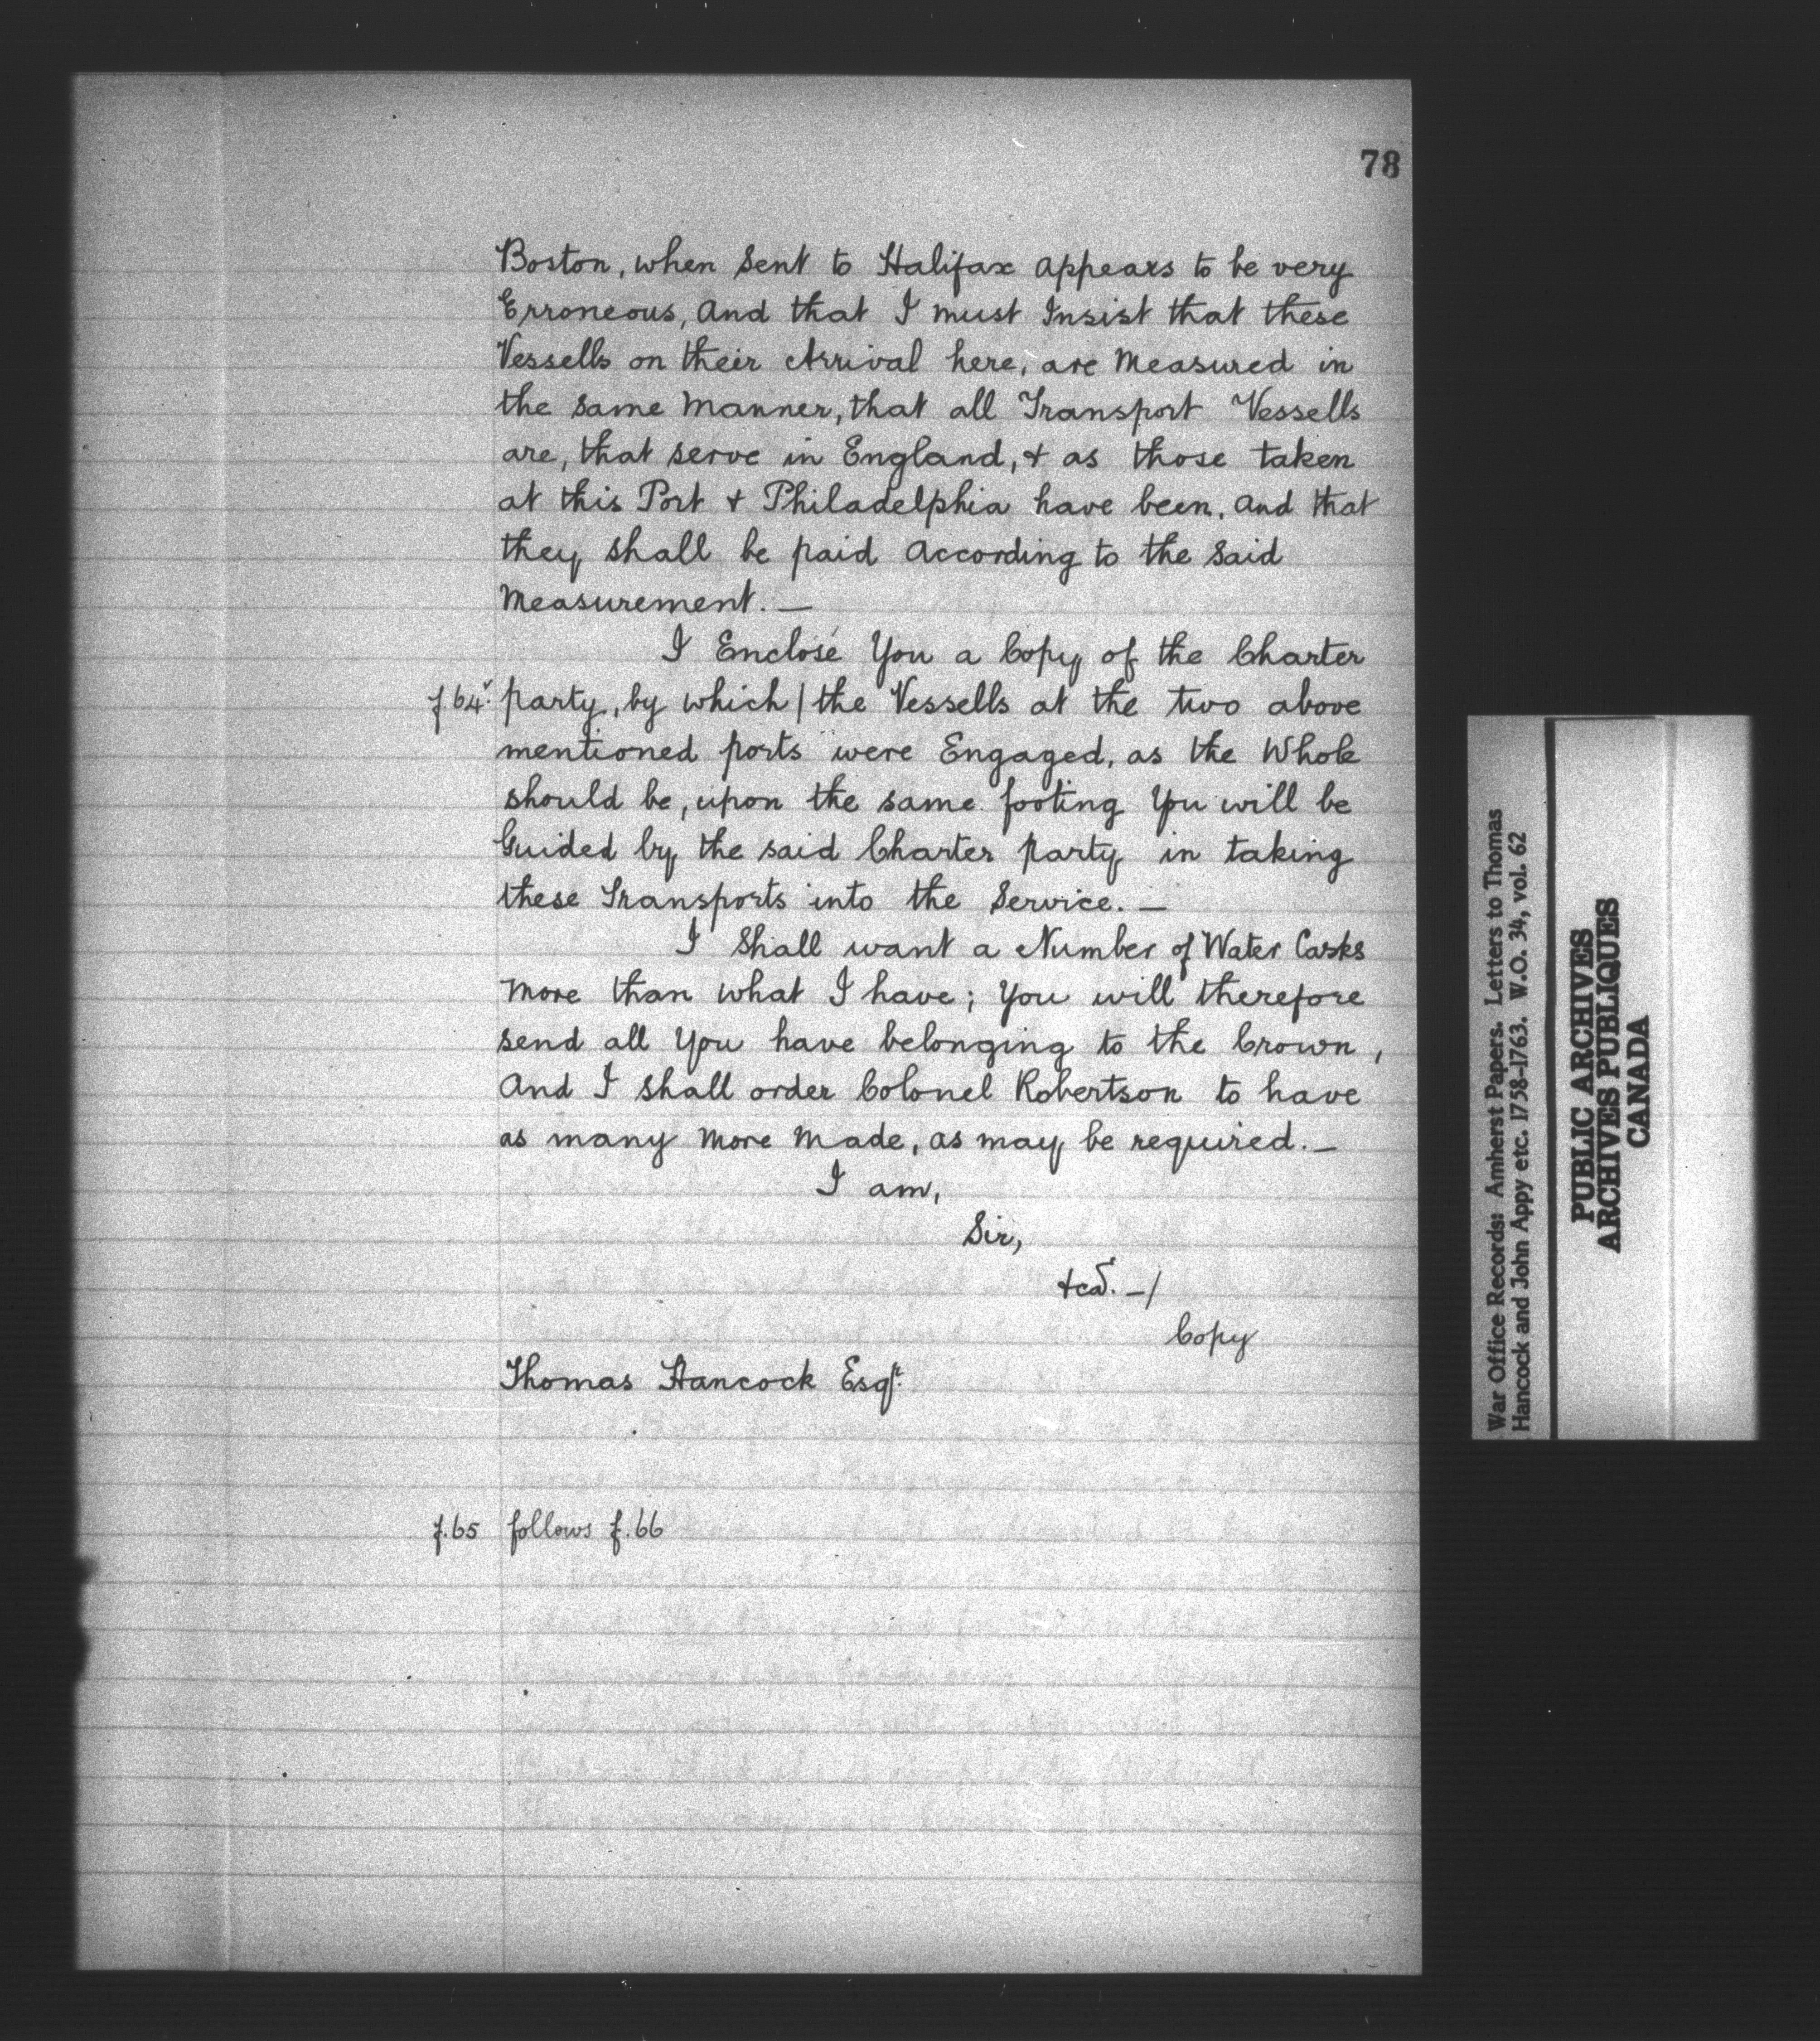 78
Boston, when Sent to Halifax appears to be very
Erroneous, And that I must Insist that these
Vessells on their Arrival here, are Measured in
the same Manner, that all Transport Vessells
are, that serve in England, & as those taken
at this Port & Philadelphia have been, And that
they shall be paid according to the Said
Measurement. —
I Enclose You a Copy of the Charter
f.64v. party, by which / the Vessells at the two above
mentioned ports were Engaged, as the Whole
should be, upon the same footing You will be
Guided by the said Charter party in taking
these Transports into the Service. —
I Shall want a Number of Water Casks
More than what I have; You will therefore
send all You have belonging to the Crown,
And I shall order Colonel Robertson to have
as many More Made, as may be required. —
I am,
Sir,
&ca. —/
Copy
Thomas Hancock Esqr.
f.65 follows f.66
War Office Records: Amherst Papers. Letters to Thomas
Hancock and John Appy etc. 1758-1763. W.O. 34, vol. 62
PUBLIC ARCHIVES
ARCHIVES PUBLIQUES
CANADA